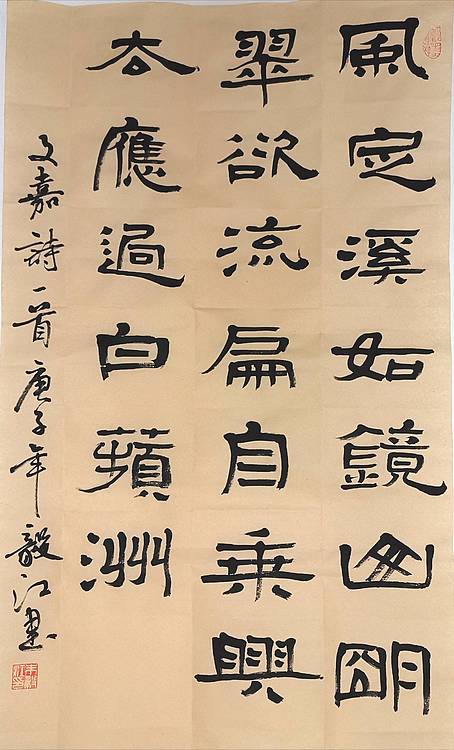 風定溪如鏡山朙
翠欲流扁自乘興
去應過白蘋洲
文嘉詩一首庚子年毅江書